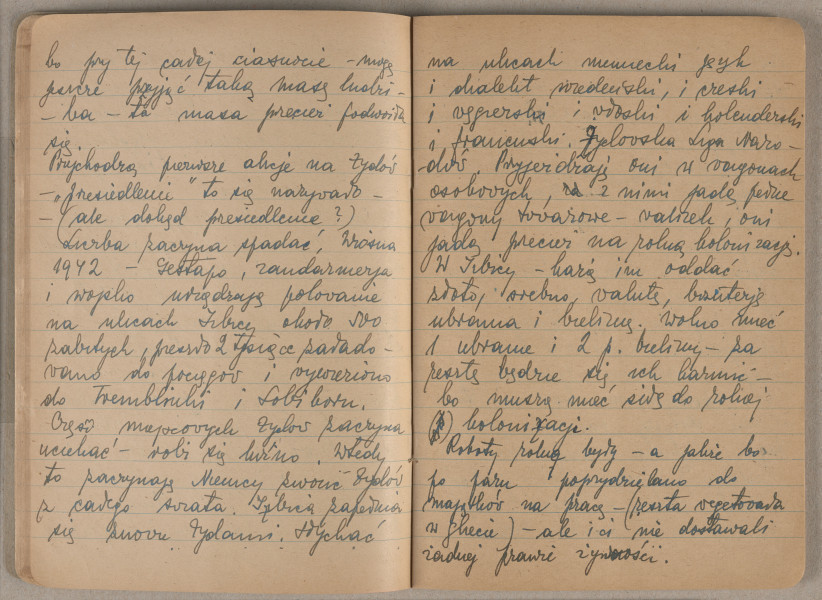 bo przy tej całej ciasnocie – mogą
jeszcze przyjąć taką masę ludzi –
– ba – ta masa przecież podwoiła
się.
Przychodzą pierwsze akcje na Żydów
– „Przesiedlenie" to się nazywało –
– (ale dokąd przesiedlenie?)
Liczba zaczyna spadać, Wiosna
1942 – Gestapo, żandarmerja
i wojsko urządzają polowanie
na ulicach Izbicy około 500
zabitych, przeszło 2 tysiące załado-
wano do pociągów i wywieziono
do Tremblinki i Sobiboru.
Część miejscowych Żydów zaczyna
uciekać – robi się luźno. Wtedy
to zaczynają Niemcy zwozić Żydów
z całego świata. Izbica zapełnia
się znowu Żydami. Słychać
na ulicach niemiecki język
i dialekt wiedeński, i czeski –
i węgierski i włoski i holenderski
i francuski. Żydowska Liga Naro-
dów. Przyjeżdżają oni w wagonach
osobowych, z nimi jadą pełne
wagony towarowe – walizek, oni
jadą przecież na rolną kolonizację.
W Izbicy – każą im oddać
złoto, srebro, walutę, biżuterję
ubrania i bieliznę. Wolno mieć
1 ubranie i 2 p. bielizny – za
resztę będzie się ich karmić –
bo muszą mieć siłę do rolnej
kolonizacji.
Roboty rolne były – a jakże bo
po paru poprzydzielano do
majątków na pracę – (reszta vegetowała
w Ghecie) – ale i ci nie dostawali
żadnej prawie żywności.